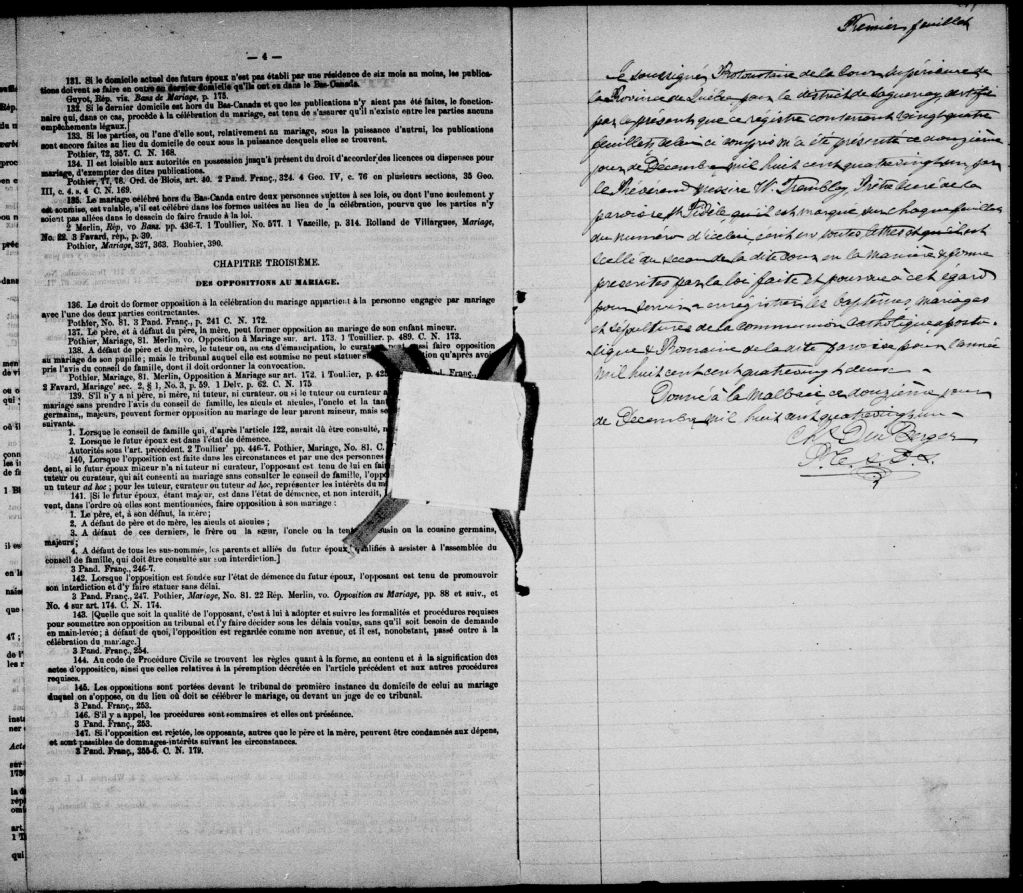 — 4 —
131. Si le domicile actuel des futurs époux n'est pas établi par une résidence de six mois au moins, les publica-
tions doivent se faire en outre au dernier domicile qu'ils ont eu dans le Bas-Canada.
Guyot, Rép. vis. Bans de Mariage, p. 175.
132. Si le dernier domicile est hors du Bas-Canada et que les publications n'y aient pas été faites, le fonction-
naire qui, dans ce cas, procède à la célébration du mariage, est tenu de s'assurer qu'il n'existe entre les parties aucuns
empêchements légaux.]
133. Si les parties, ou l'une d'elles sont, relativement au mariage, sous la puissance d'autrui, les publications
sont encore faites au lieu du domicile de ceux sous la puissance desquels elles se trouvent.
Pothier, 72, 357. C. N. 168.
134. Il est loisible aux autorités en possession jusqu'à présent du droit d'accorder des licences ou dispenses pour
mariage, d'exempter des dites publications.
Pothier, 77, 78. Ord. de Blois, art. 40. 2 Pand. Franç., 324. 4 Geo. IV, c. 76 en plusieurs sections, 35 Geo.
III, c. 4. s. 4 C. N. 169.
135. Le mariage célébré hors du Bas-Canda entre deux personnes sujettes à ses lois, ou dont l'une seulement y
est soumise, est valable, s'il est célébré dans les formes usitées au lieu de la célébration, pourvu que les parties n'y
soient pas allées dans le dessein de faire fraude à la loi.
2 Merlin, Rép, vo Bans. pp. 436-7. 1 Toullier, No. 577. 1 Vazeille, p. 314. Rolland de Villargues, Mariage,
No. 22. 3 Favard, rép., p. 30.
Pothier, Mariage, 327, 363. Bouhier, 390.
CHAPITRE TROISIÈME.
DES OPPOSITIONS AU MARIAGE.
136. Le droit de former opposition à la célébration du mariage appartient à la personne engagée par mariage
avec l'une des deux parties contractantes.
Pothier, No. 81. 3 Pand. Franç., p. 241 C. N. 172.
137. Le père, et à défaut du père, la mère, peut former opposition au mariage de son enfant mineur.
Pothier, Mariage, 81. Merlin, vo. Opposition à Mariage sur. art. 173. 1 Touillier. p. 489. C. N. 173.
138. A défaut de père et de mère, le tuteur ou, au cas d'émancipation, le curateur peut aussi faire opposition
au mariage de son pupille; mais le tribunal auquel elle est soumise ne peut statuer sur ition qu'après avoir
pris l'avis du conseil de famille, dont il doit ordonner la convocation.
Pothier, Mariage, 81. Merlin, Opposition à Mariage sur art. 172. 1 Toullier, p. 425 Franç.,
2 Favard, Mariage' sec. 2, § 1, No. 3, p. 59. 1 Delv. p. 62. C. N. 175
139. S'il n'y a ni père, ni mère, ni tuteur, ni curateur, ou si le tuteur ou curateur a
mariage sans prendre l'avis du conseil de famille, les aïeuls et aïeules, l'oncle et la tant
germains, majeurs, peuvent former opposition au mariage de leur parent mineur, mais se
suivants.
1. Lorsque le conseil de famille qui, d'après l'article 122, aurait dû être consulté, n
2. Lorsque le futur époux est dans l'état de démence.
Autorités sous l'art. précédent. 2 Toullier' pp. 446-7. Pothier, Mariage, No. 81. C.
140. Lorsque l'opposition est faite dans les circonstances et par une des personnes
dent, si le futur époux mineur n'a ni tuteur ni curateur, l'opposant est tenu de lui en fair
tuteur ou curateur, qui ait consenti au mariage sans consulter le conseil de famille, l'oppo
un tuteur ad hoc; pour les tuteur, curateur ou tuteur ad hoc, représenter les intérêts du m
141. [Si le futur époux, étant majeur, est dans l'état de démence, et non interdit,
vent, dans l'ordre où elles sont mentionnées, faire opposition à son mariage :
1. Le père, et, à son défaut, la mère;
2. A défaut de père et de mère, les aïeuls et aïeules;
3. A défaut de ces derniers, le frère ou la sœur, l'oncle ou la tante usin ou la cousine germains,
majeurs;
4. A défaut de tous les sus-nommés, les parents et alliés du futur époux qualifiés à assister à l'assemblée du
conseil de famille, qui doit être consulté sur son interdiction.]
3 Pand. Franç., 246-7.
142. Lorsque l'opposition est fondée sur l'état de démence du futur époux, l'opposant est tenu de promouvoir
son interdiction et d'y faire statuer sans délai.
3 Pand. Franç., 247. Pothier, Mariage, No. 81. 22 Rép. Merlin, vo. Opposition au Mariage, pp. 88 et suiv., et
No. 4 sur art. 174. C. N. 174.
143. [Quelle que soit la qualité de l'opposant, c'est à lui à adopter et suivre les formalités et procédures requises
pour soumettre son opposition au tribunal et l'y faire décider sous les délais voulus, sans qu'il soit besoin de demande
en main-levée; à défaut de quoi, l'opposition est regardée comme non avenue, et il est, nonobstant, passé outre à la
célébration du mariage.]
3 Pand. Franç., 254.
144. Au code de Procédure Civile se trouvent les règles quant à la forme, au contenu et à la signification des
actes d'opposition, ainsi que celles relatives à la péremption décrétée en l'article précédent et aux autres procédures
requises.
145. Les oppositions sont portées devant le tribunal de première instance du domicile de celui au mariage
duquel on s'oppose, ou du lieu où doit se célébrer le mariage, ou devant un juge de ce tribunal.
3 Pand. Franç., 253.
146. S'il y a appel, les procédures sont sommaires et elles ont préséance.
3 Pand. Franç., 253.
147. Si l'opposition est rejetée, les opposants, autres que le père et la mère, peuvent être condamnés aux dépens,
et sont passibles de dommages-intérêts suivant les circonstances.
3 Pand. Franç., 255-6. C. N. 179.
Premier feuillet
Je soussigné, Protonotaire de la Cour Supérieure de
la Province de Québec pour le district de Saguenay, certifie
par le présent que ce registre contenant vingt quatre
feuillets celui ci compris m'a été présenté ce douzième
jour de Décembre mil huit cent quatrevingt un par
le Révérend Messire W. Tremblay, Prêtre Curé de la
paroisse St Fidèle qu'il est marqué sur chaque feuillet
du numéro d'icelui, écrit en toutes lettres et qu'il est
scellé du sceau de la dite Cour en la manière & forme
prescrites par la loi faite et pourvue à cet égard
pour servir a enrégistrer les baptêmes mariages
et sépultures de la communion catholique aposto-
lique & Romaine de la dite paroisse pour l'année
mil huit cent cent quatrevingt deux —
Donné à la Malbaie ce douzième jour
de Décembre mil huit cent quatrevingt un —
Chs Du Berger
P. C. S. D. S.